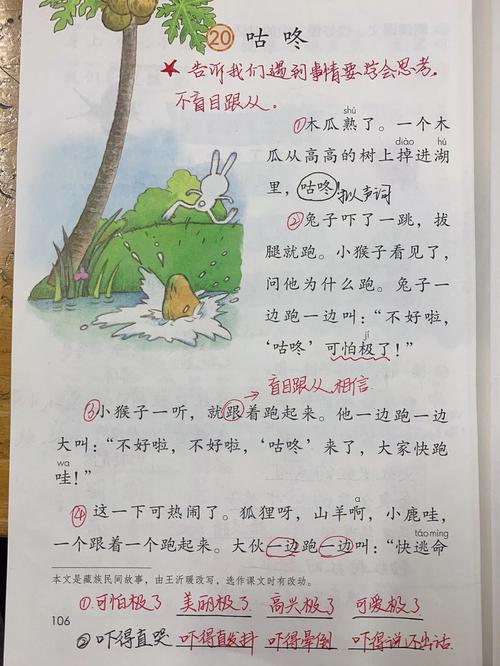 20 咕咚
★ 告诉我们遇到事情要学会思考，
不盲目跟从。
shú
①木瓜熟了。一个木
diào hú
瓜从高高的树上掉进湖
里，咕咚 拟人声词
②兔子吓了一跳，拔
腿就跑。小猴子看见了，
问他为什么跑。兔子一
边跑一边叫：“不好啦，
jí
‘咕咚’可怕极了！”
→盲目跟从 相信
③小猴子一听，就跟着跑起来。他一边跑一边
大叫：“不好啦，不好啦，‘咕咚’来了，大家快跑
wa
哇！”
a
④这一下可热闹了。狐狸呀，山羊啊，小鹿哇，
táo mìng
一个跟着一个跑起来。大伙一边跑一边叫：“快逃命
本文是藏族民间故事，由王沂暖改写，选作课文时有改动。
①可怕极了 美丽极了 高兴极了 可爱极了
106
②吓得直哭 吓得直发抖 吓得晕倒 吓得说不出话